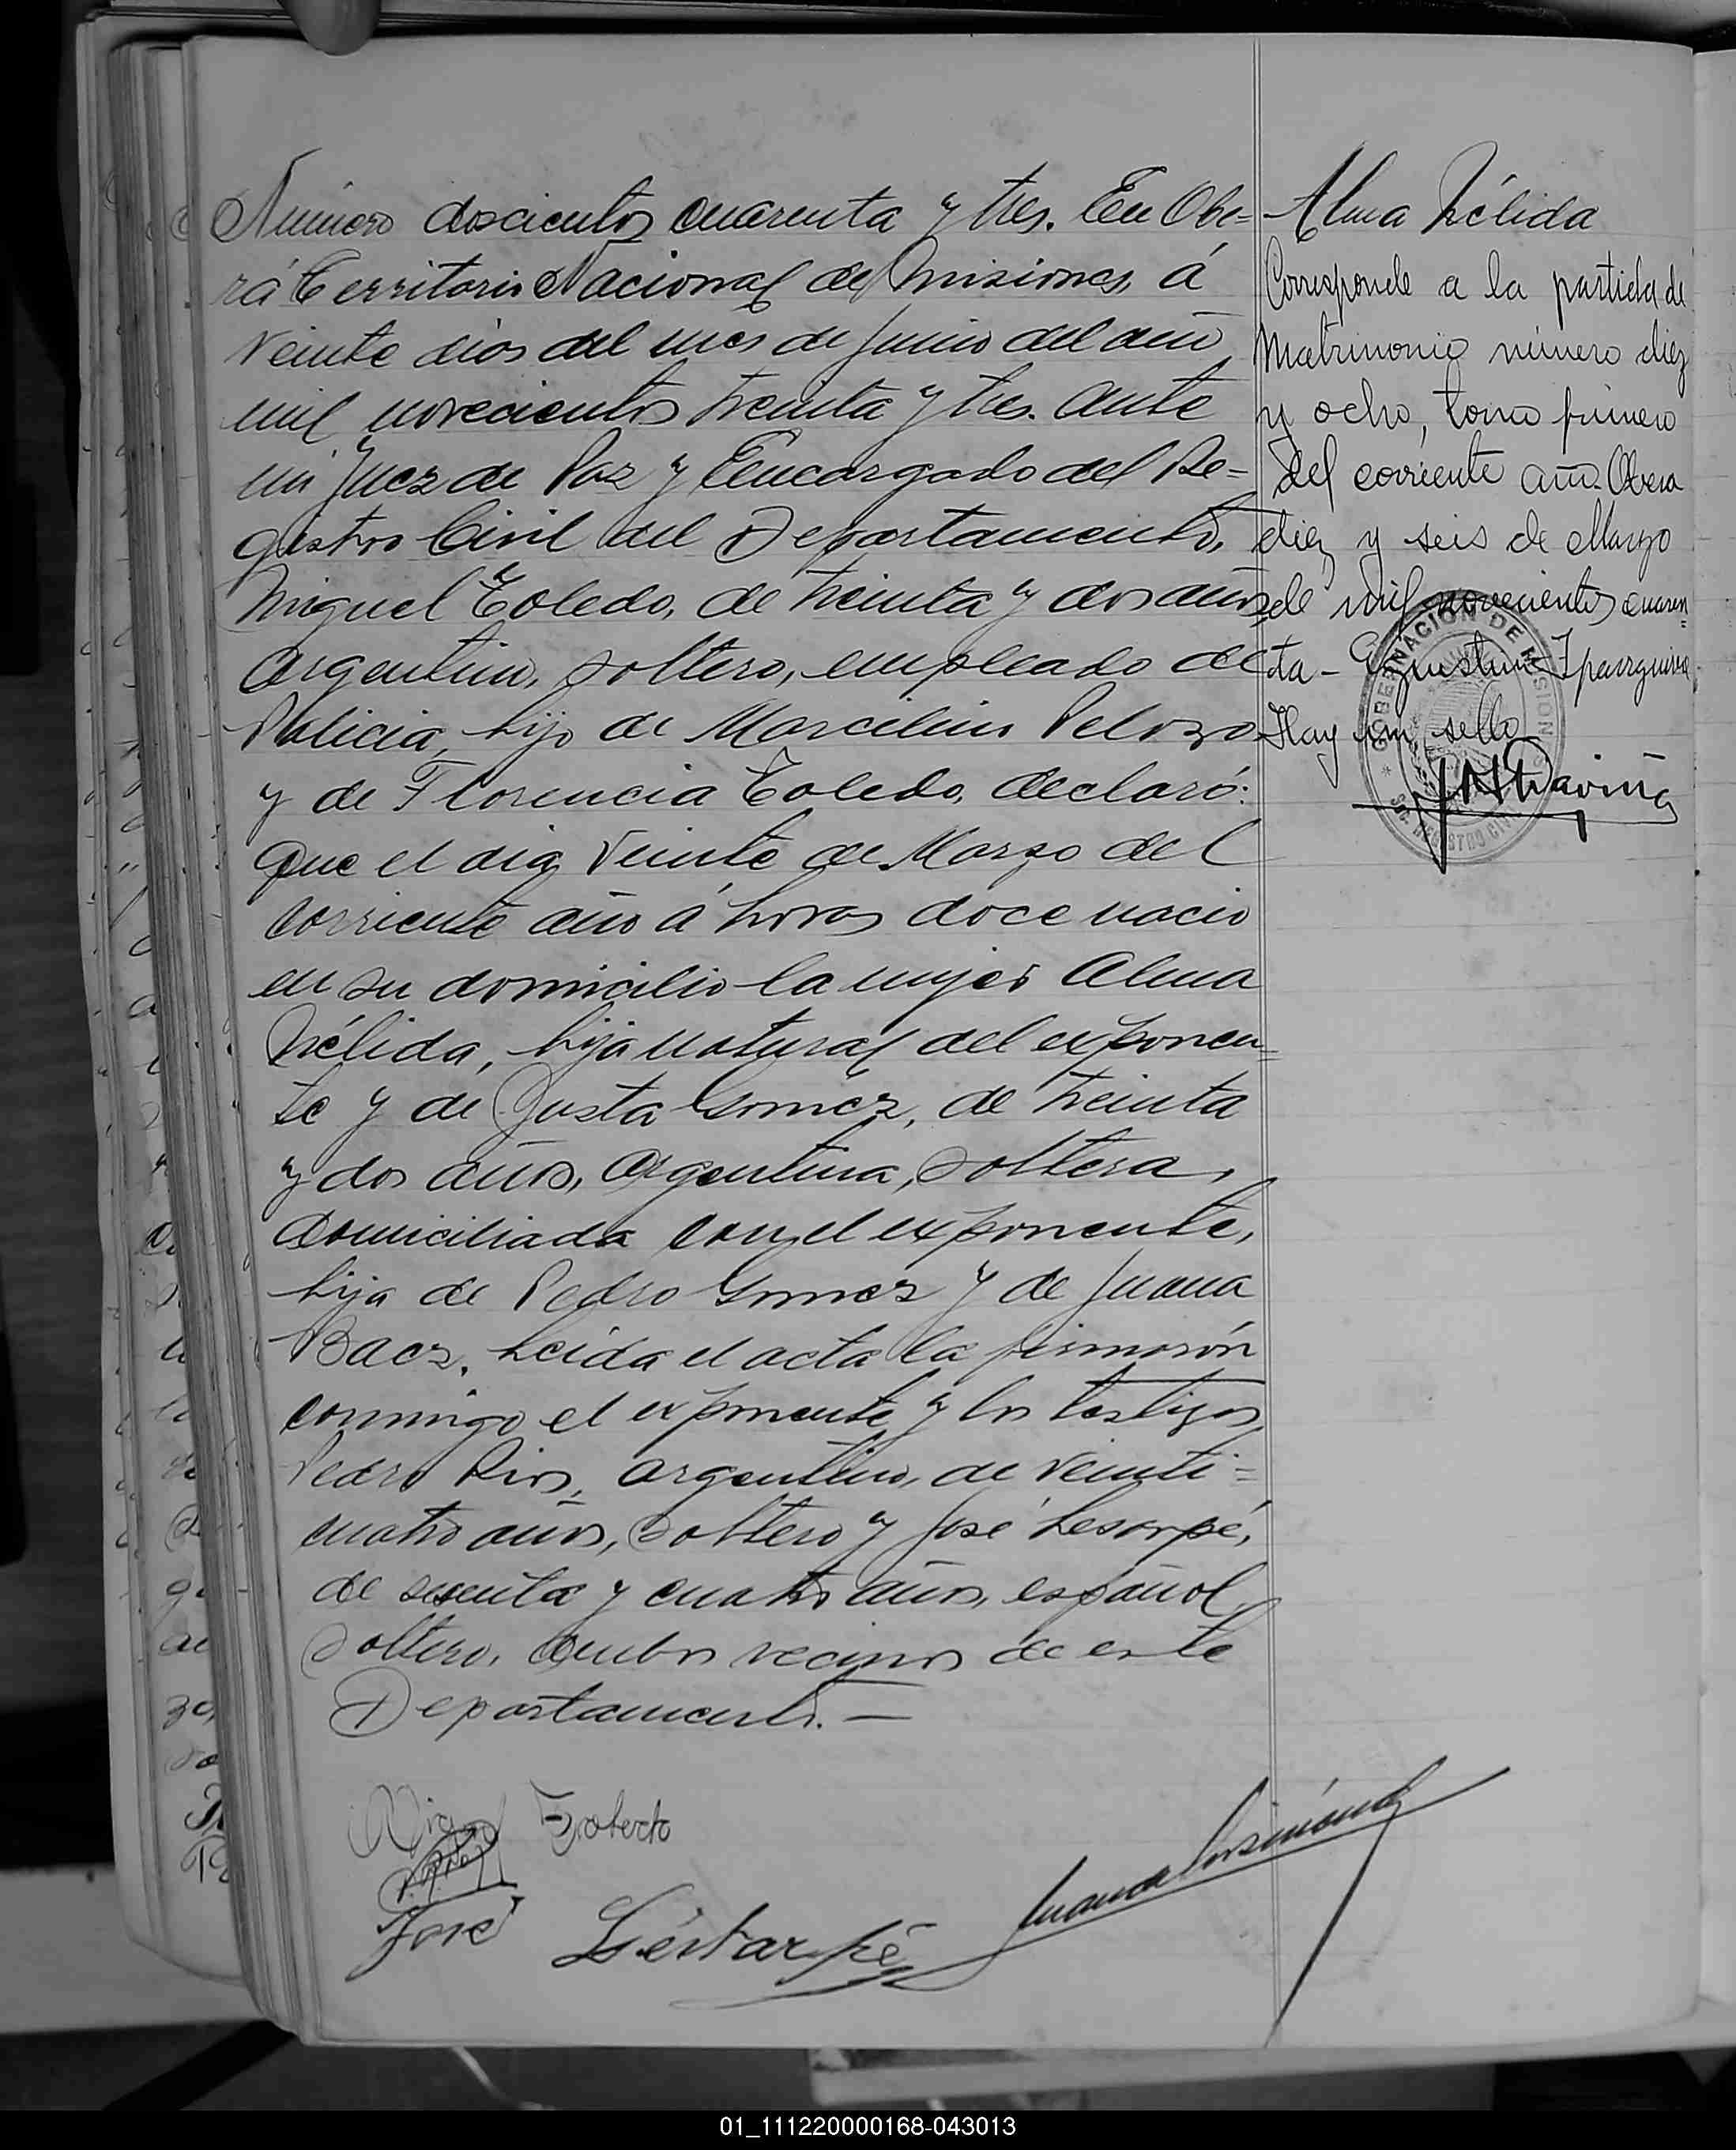 Número doscientos cuarenta y tres. En Obe=
rá Territorio Nacional de Misiones, á
veinte dias del mes de Junio del año
mil novecientos treinta y tres. Ante
mi Juez de Paz y Encargado del Re=
gistro Civil del Departamento,
Miguel Toledo, de treinta y dos años
Argentino, soltero, empleado de
Policia, hijo de Marcelino Pelozo
y de Florencia Toledo, declaró:
Que el dia veinte de Marzo del
corriente año á horas doce nació
en su domicilio la mujer Alma
Nélida, hija natural del exponen=
te y de Justa Gomez, de treinta
y dos años, Argentina, soltera,
domiciliada con el exponente,
hija de Pedro Gomez y de Juana
Baez. Leida el acta la firmarón
conmigo el exponente y los testigos
Pedro Rios, argentino, de veinti=
cuatro años, soltero y José Lesarpé,
de sesenta y cuatro años, español
soltero, ambos vecinos de este
Departamento. —
Alma Nélida
Corresponde a la partida de
Matrimonio número diez
y ocho, tomo primero
del corriente año. Obera
diez y seis de Marzo
de mil novecientos cuaren=
ta -
Hay un sello
GOBERNACION DE MISIONES
REGISTRO CIVIL
José Léstarpé